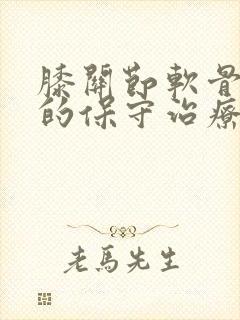 膝關節軟骨
的保守治療
老馬先生